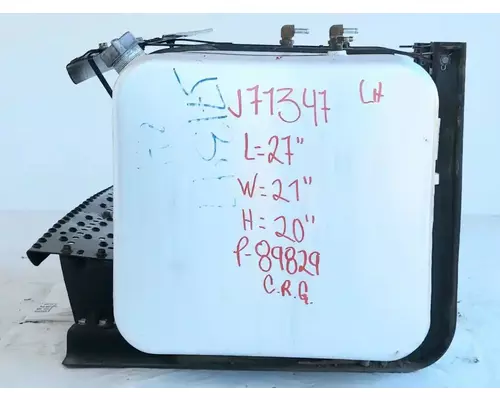 J71347 LH
L=27"
W=21"
H=20"
P-89829
C.R.G.